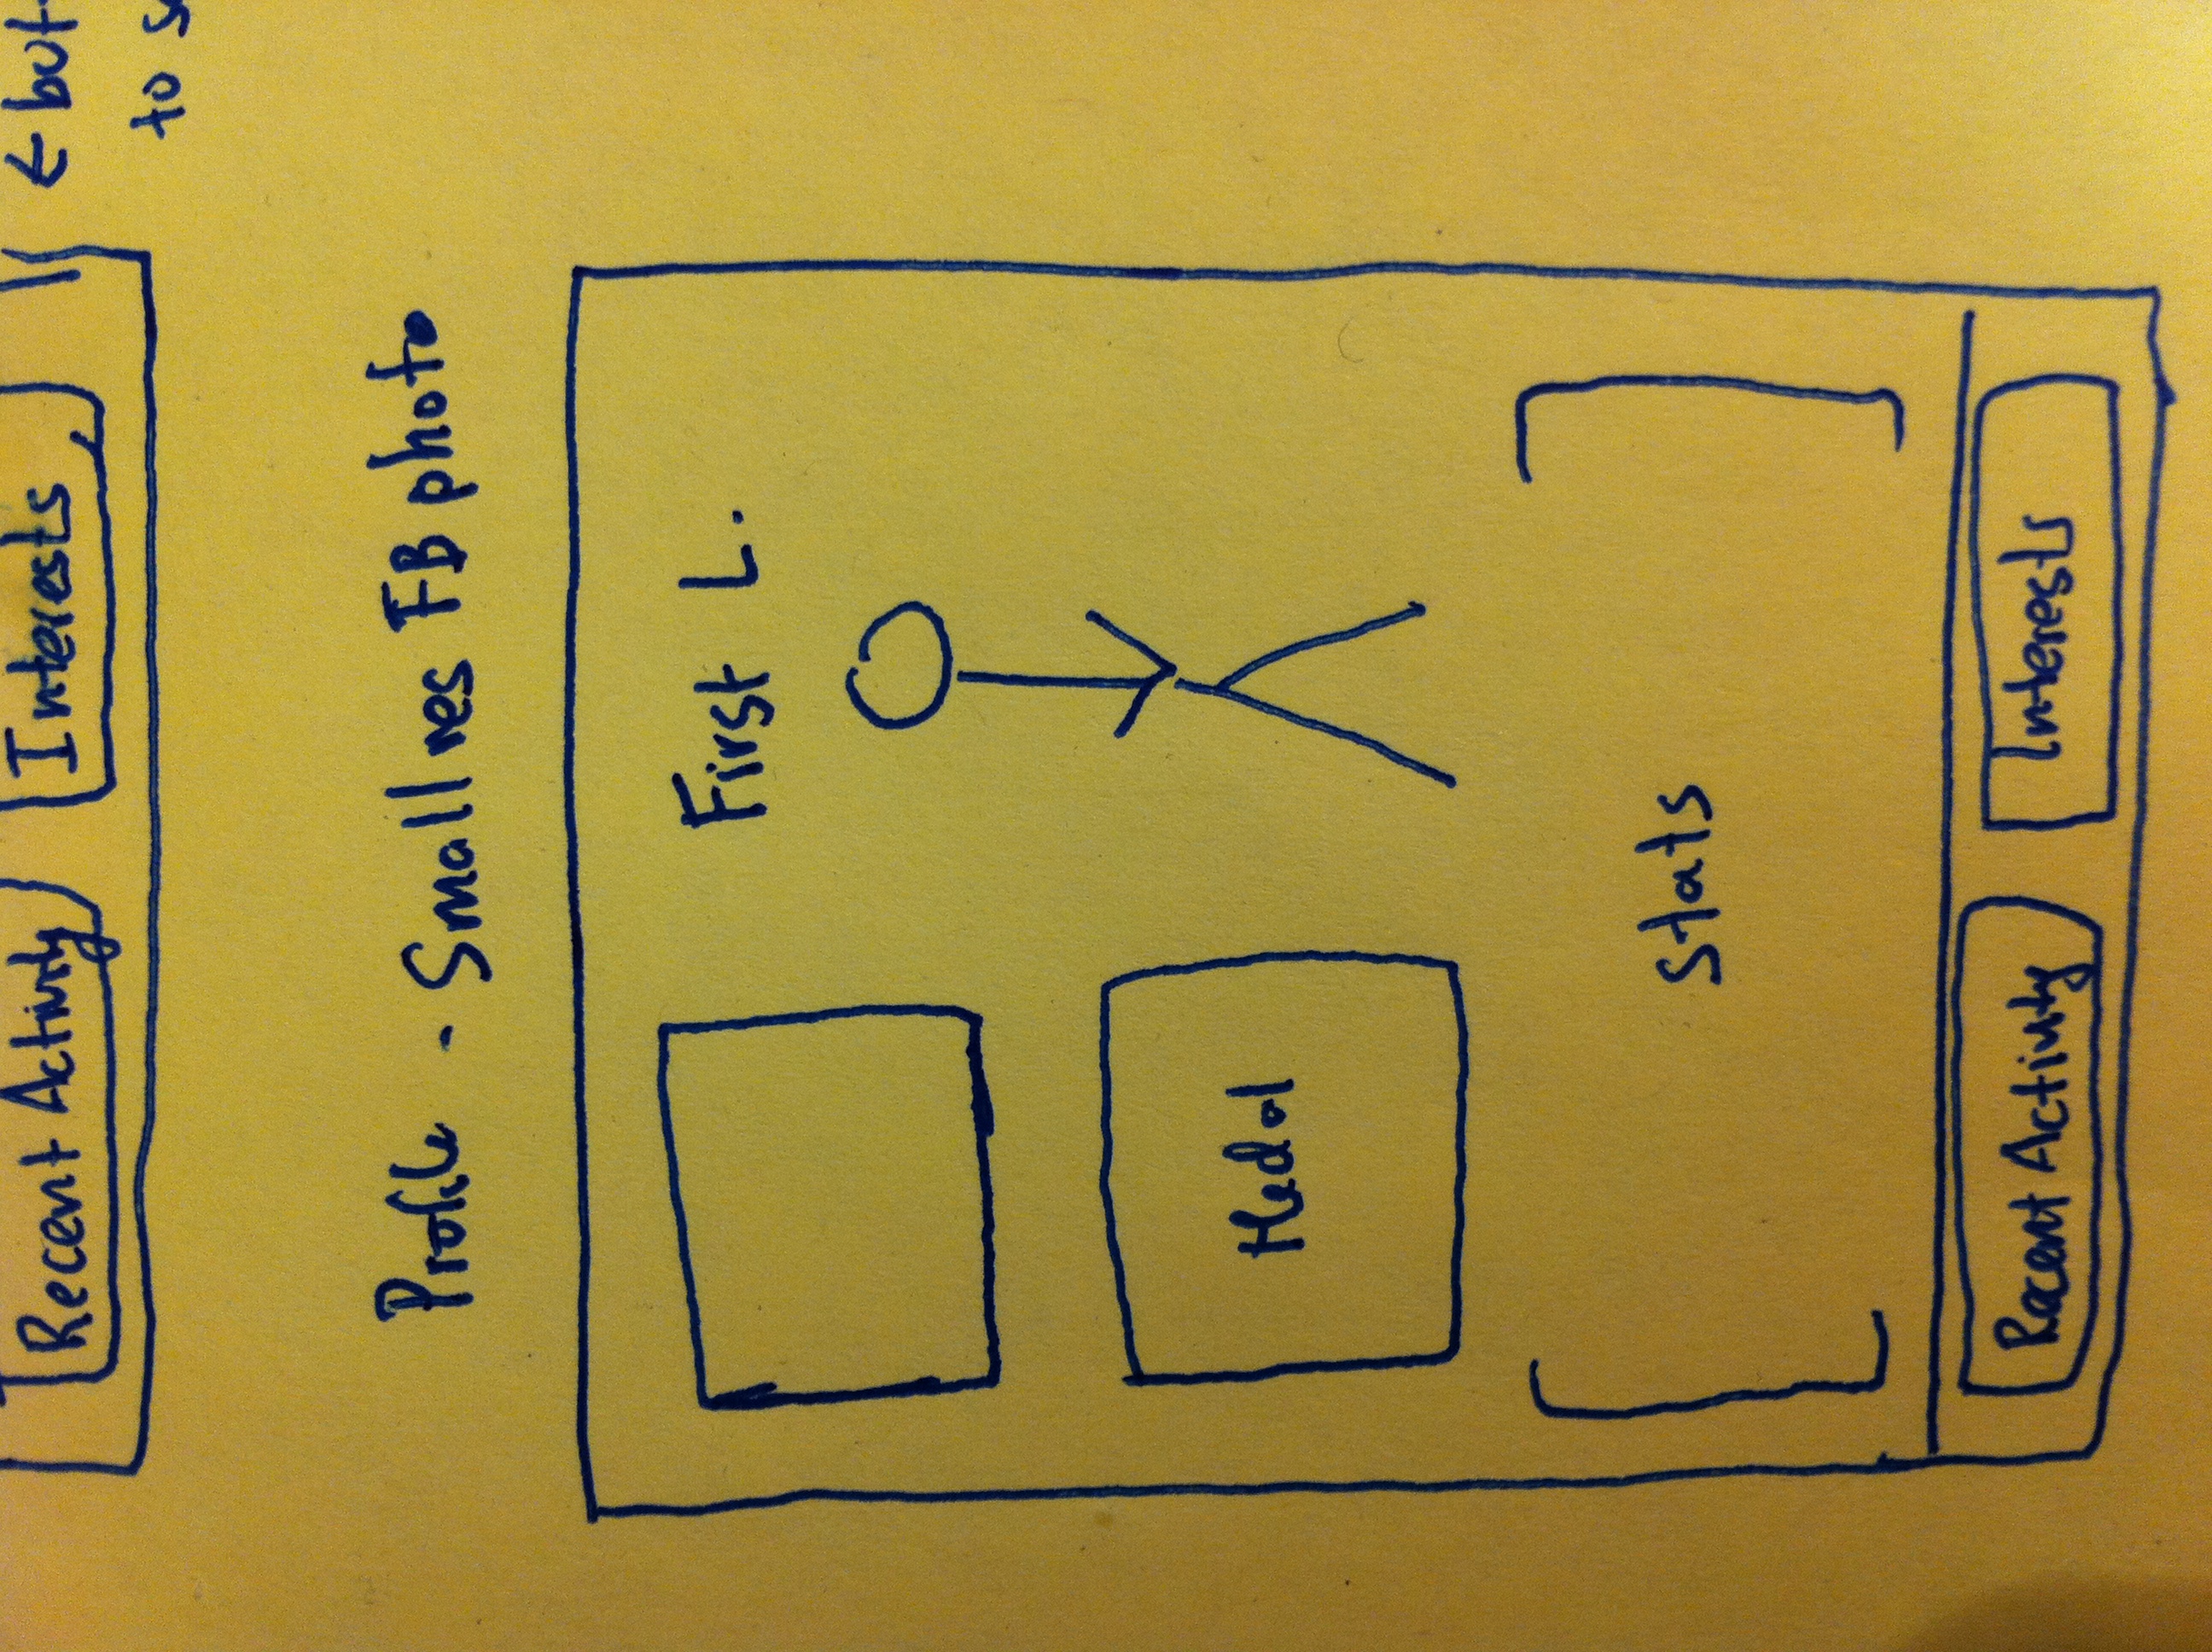 Recent Activity Interests ← but
to
Profile - Small res FB photo
First L.
Medal
Stats
Recent Activity Interests